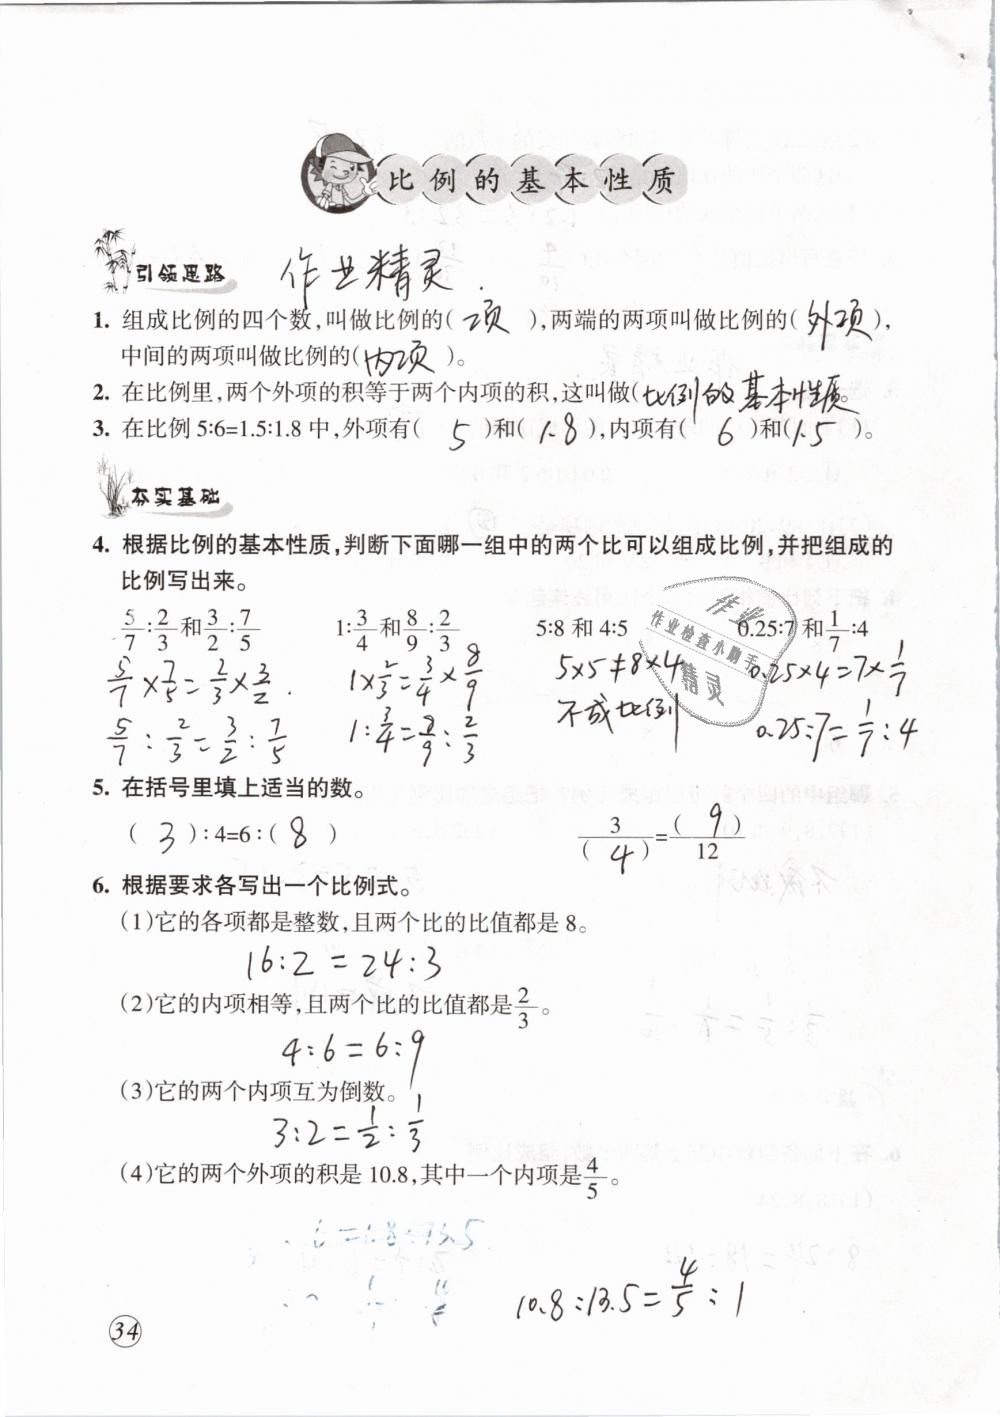 比例的基本性质
引领思路 作业精灵.
1. 组成比例的四个数,叫做比例的( 项 ),两端的两项叫做比例的( 外项 ),
中间的两项叫做比例的( 内项 )。
2. 在比例里,两个外项的积等于两个内项的积,这叫做( 比例的基本性质 。
3. 在比例5:6=1.5:1.8中,外项有( 5 )和( 1.8 ),内项有( 6 )和( 1.5 )。
夯实基础
4. 根据比例的基本性质,判断下面哪一组中的两个比可以组成比例,并把组成的
比例写出来。
5/7:2/3和3/2:7/5 1:3/4和8/9:2/3 5:8和4:5 0.25:7和1/7:4
5/7×7/5=2/3×3/2. 1×2/3=3/4×8/9 5×5≠8×4 0.25×4=7×1/7
5/7:2/3=3/2:7/5 1:3/4=8/9:2/3 不成比例 0.25:7=1/7:4
作业
作业检查小助手
精灵
5. 在括号里填上适当的数。
( 3 ):4=6:( 8 ) 3/( 4 )=( 9 )/12
6. 根据要求各写出一个比例式。
(1)它的各项都是整数,且两个比的比值都是8。
16:2=24:3
(2)它的内项相等,且两个比的比值都是2/3。
4:6=6:9
(3)它的两个内项互为倒数。
3:2=1/2:1/3
(4)它的两个外项的积是10.8,其中一个内项是4/5。
10.8:13.5=4/5:1
34